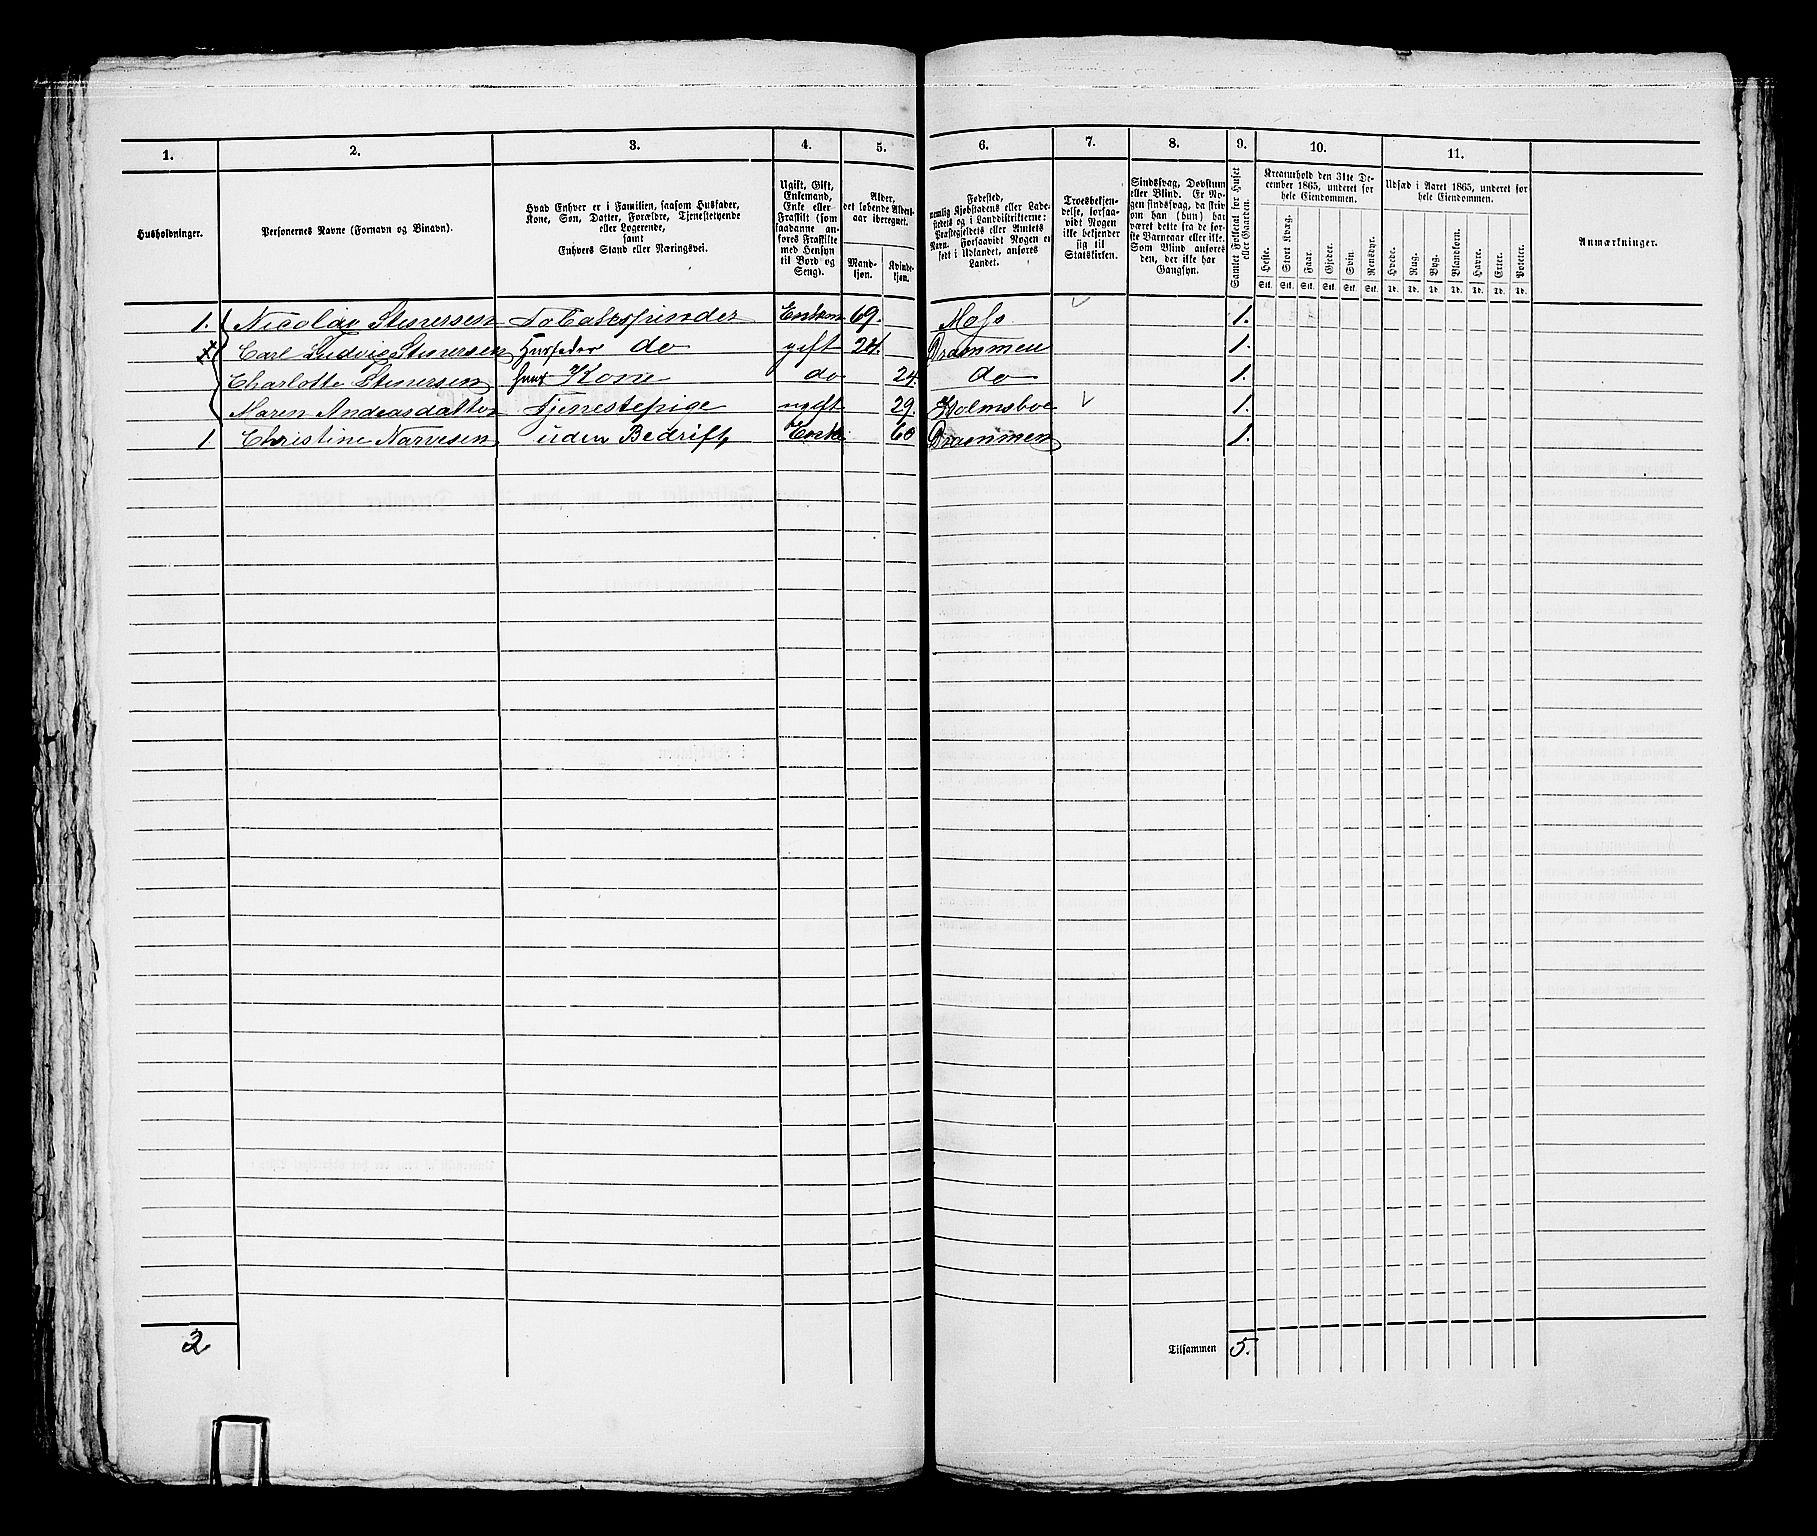 1. 2. 3. 4. 5. 6. 7. 8. 9. 10. 11.
Husholdninger.
Personernes Navne (Fornavn og Binavn).
Hvad Enhver er i Familien, saasom Husfader,
Kone, Søn, Datter, Forældre, Tjenestetyende
eller Logerende,
samt
Enhvers Stand eller Næringsvei.
Ugift, Gift,
Enkemand,
Enke eller
Fraskilt (som
saadanne an-
føres Fraskilte
med Hensyn
til Bord og
Seng).
Alder,
det løbende Alders-
aar iberegnet.
Mand-
kjøn.
Kvinde-
kjøn.
Fødested,
nemlig Kjøbstadens eller Lade-
stedets og i Landdistrikterne:
Præstegjeldets eller Amtets
Navn. Forsaavidt Nogen er
født i Udlandet, anføres
Landet.
Troesbekjen-
delse, forsaa-
vidt Nogen
ikke bekjender
sig til
Statskirken.
Sindssvag, Døvstum
eller Blind. Er No-
gen sindssvag, da skriv
om han (hun) har
været dette fra de før-
ste Barneaar eller ikke.
Som Blind anføres
den, der ikke har
Gangsyn.
Samlet Folketal for Huset
eller Gaarden.
Kreaturhold den 31te De-
cember 1865, underet for
hele Eiendommen.
Heste. Stort Kvæg. Faar. Gjeder. Svin. Rensdyr.
Stk. Stk. Stk. Stk. Stk. Stk.
Udsæd i Aaret 1865, underet for
hele Eiendommen.
Hvede. Rug. Byg. Blandkorn. Havre. Erter. Poteter.
Td. Td. Td. Td. Td. Td. Td.
Anmærkninger.
1. Nicolay Stenersen Tobakspinder Enkem 69. Moss 1.
Carl Ludvig Stenersen Husfader do gift 24. Drammen 1.
Charlotte Stenersen hans Kone do 24. do 1.
Maren Andreasdatter Tjenestepige ugift 29. Holmsboe 1.
1 Christine Narvesen uden Bedrift Enke 60 Drammen 1.
2 Tilsammen 5.